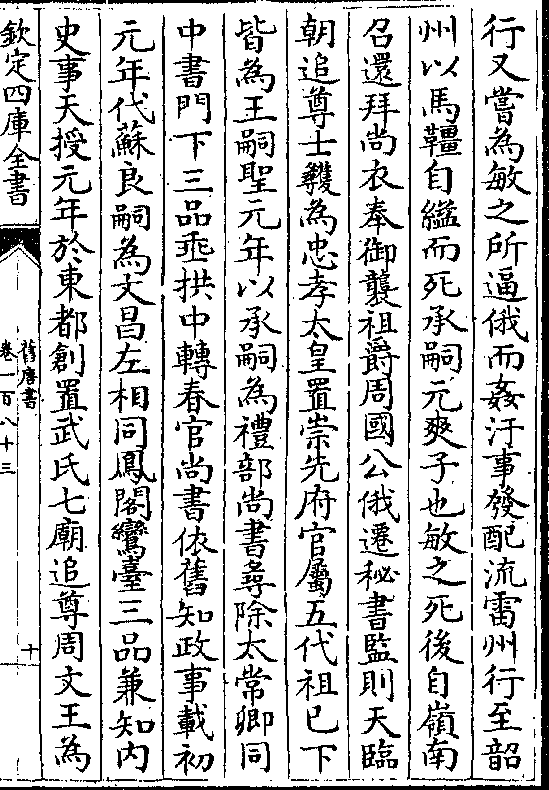 行又嘗為敏之所逼俄而姦汙事發配流雷州行至韶
州以馬韁自縊而死承嗣元爽子也敏之死後自嶺南
召還拜尚衣奉御襲祖爵周國公俄遷秘書監則天臨
朝追尊士彠為忠孝太皇置崇先府官屬五代祖已下
皆為王嗣聖元年以承嗣為禮部尚書尋除太常卿同
中書門下三品垂拱中轉春官尚書依舊知政事載初
元年代蘇良嗣為文昌左相同鳳閣鸞臺三品兼知內
史事天授元年於東都創置武氏七廟追尊周文王為
欽定四庫全書
舊唐書
卷一百八十三
十